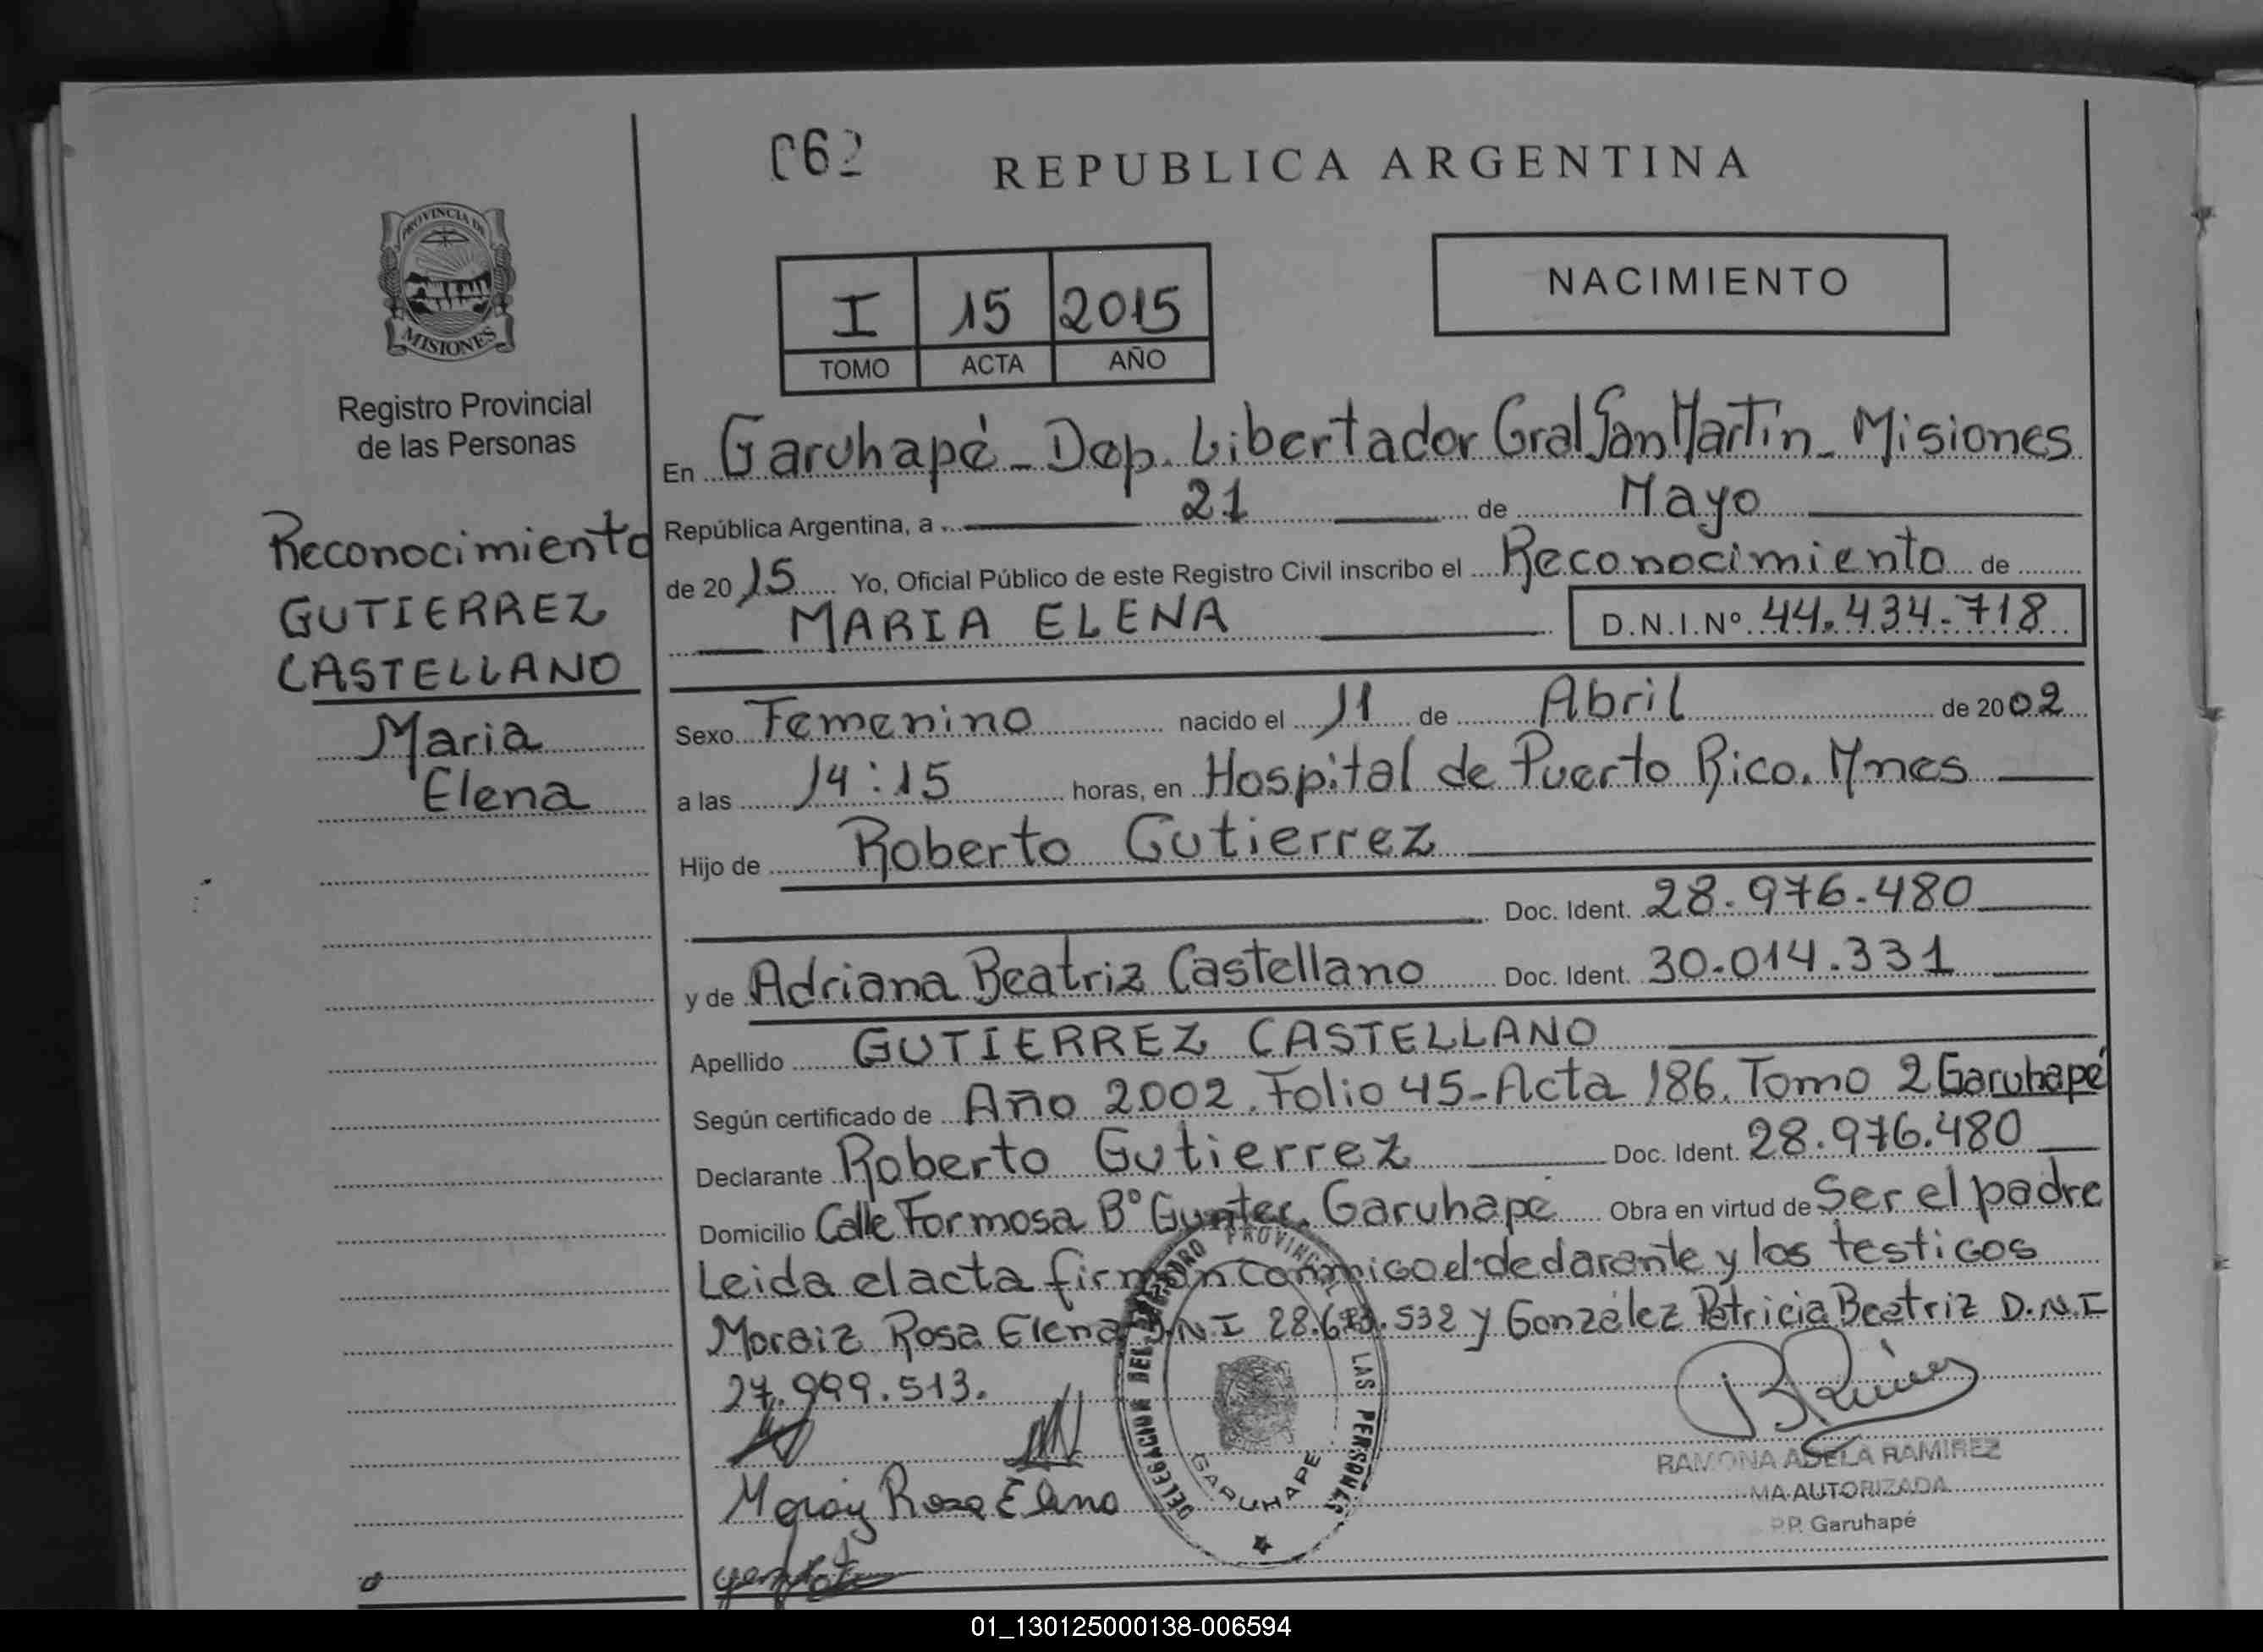 062
REPUBLICA ARGENTINA
PROVINCIA DE
MISIONES
Registro Provincial
de las Personas
I 15 2015
TOMO ACTA AÑO
NACIMIENTO
Reconocimiento
GUTIERREZ
CASTELLANO
Maria
Elena
En Garuhapé - Dep. Libertador Gral San Martín - Misiones
República Argentina, a 21 de Mayo
de 2015 Yo, Oficial Público de este Registro Civil inscribo el Reconocimiento de
MARIA ELENA D.N.I.Nº 44.434.718
Sexo Femenino nacido el 11 de Abril de 2002
a las 14:15 horas, en Hospital de Puerto Rico. Mnes
Hijo de Roberto Gutierrez
Doc. Ident. 28.976.480
y de Adriana Beatriz Castellano Doc. Ident. 30.014.331
Apellido GUTIERREZ CASTELLANO
Según certificado de Año 2002. Folio 45 - Acta 186. Tomo 2 Garuhapé
Declarante Roberto Gutierrez Doc. Ident. 28.976.480
Domicilio Calle Formosa Bº Guntec. Garuhapé Obra en virtud de Ser el padre
Leida el acta firman conmigo el declarante y los testigos
Moraiz Rosa Elena D.N.I 28.6 .532 y González Patricia Beatriz D.N.I
27.999.513.
DELEGACION DEL REGISTRO PROVINCIAL DE LAS PERSONAS
GARUHAPE
RAMONA ADELA RAMIREZ
MA AUTORIZADA
P.P. Garuhapé
Rosa Elena
01_130125000138-006594